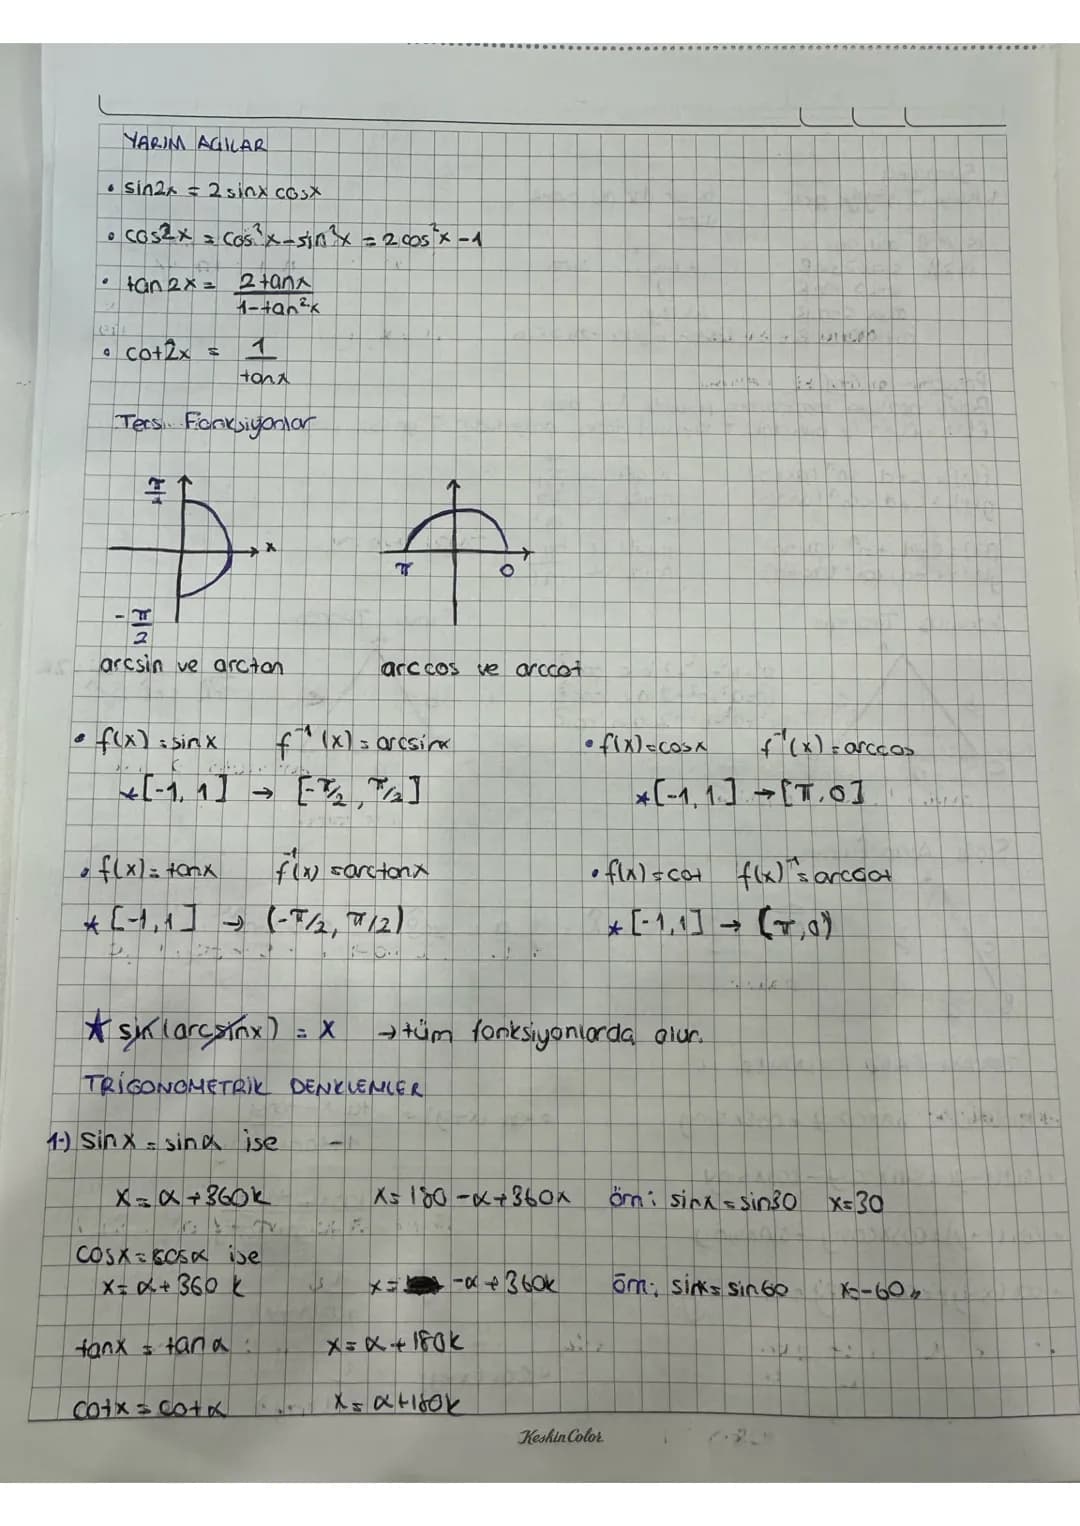 YARIM AÇILAR
• sin2x = 2 sinx cosx
• cos2x = cos²x - sin²x = 2cos²x - 1
• tan2x = 2tanx / 1-tan²x
• cot2x = 1 / tanx
Ters Fonksiyonlar
π/2
x
-π/2
π 0
arcsin ve arctan arccos ve arccot
• f(x) = sinx f⁻¹(x) = arcsinx • f(x) = cosx f⁻¹(x) = arccos
* [-1, 1] → [-π/2, π/2] * [-1, 1] → [π, 0]
• f(x) = tanx f⁻¹(x) = arctanx • f(x) = cot f(x)⁻¹ = arccot
* [-1, 1] → (-π/2, π/2) * [-1, 1] → (π, 0)
★ sin(arcsinx) = x → tüm fonksiyonlarda olur.
TRİGONOMETRİK DENKLEMLER
1-) sinx = sinα ise
x = α + 360k x = 180 - α + 360k örn: sinx = sin30 x = 30
cosx = cosα ise
x = α + 360 k x = -α + 360k örn: sinx = sin60 x = -60
tanx = tanα x = α + 180k
cotx = cotα x = α + 180k
KeskinColor